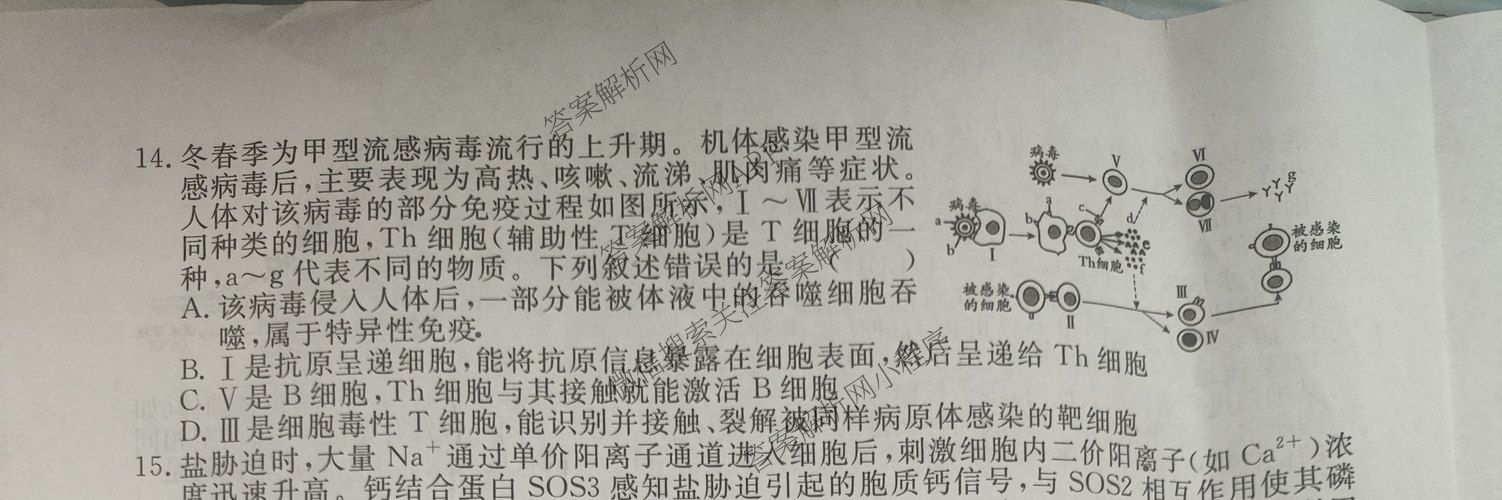 14. 冬春季为甲型流感病毒流行的上升期。机体感染甲型流
感病毒后,主要表现为高热、咳嗽、流涕、肌肉痛等症状。
人体对该病毒的部分免疫过程如图所示,Ⅰ~Ⅶ表示不
同种类的细胞,Th 细胞(辅助性 T 细胞)是 T 细胞的一
种,a~g 代表不同的物质。下列叙述错误的是 ( )
A. 该病毒侵入人体后,一部分能被体液中的吞噬细胞吞
噬,属于特异性免疫.
B. Ⅰ是抗原呈递细胞,能将抗原信息暴露在细胞表面,然后呈递给 Th 细胞
C. Ⅴ是 B 细胞,Th 细胞与其接触就能激活 B 细胞
D. Ⅲ是细胞毒性 T 细胞,能识别并接触、裂解被同样病原体感染的靶细胞
15. 盐胁迫时,大量 Na⁺ 通过单价阳离子通道进入细胞后,刺激细胞内二价阳离子(如 Ca²⁺)浓
度迅速升高。钙结合蛋白 SOS3 感知盐胁迫引起的胞质钙信号,与 SOS2 相互作用使其磷
病毒
Ⅴ
Ⅵ
g
病毒
a
b
Ⅰ
a
b
c
Th细胞
d
e
f
Ⅶ
被感染
的细胞
被感染
的细胞
Ⅱ
Ⅲ
Ⅳ
答案解析网
答案解析网
答案解析网
微信搜索关注答案解析网
答案解析网小程序